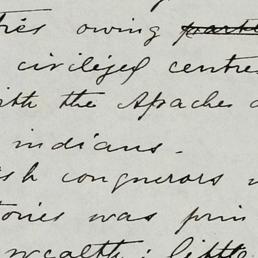 tries owing
civilized centres
ith the Apaches
indians.
sh conquerors
tories was prin
wealth; little